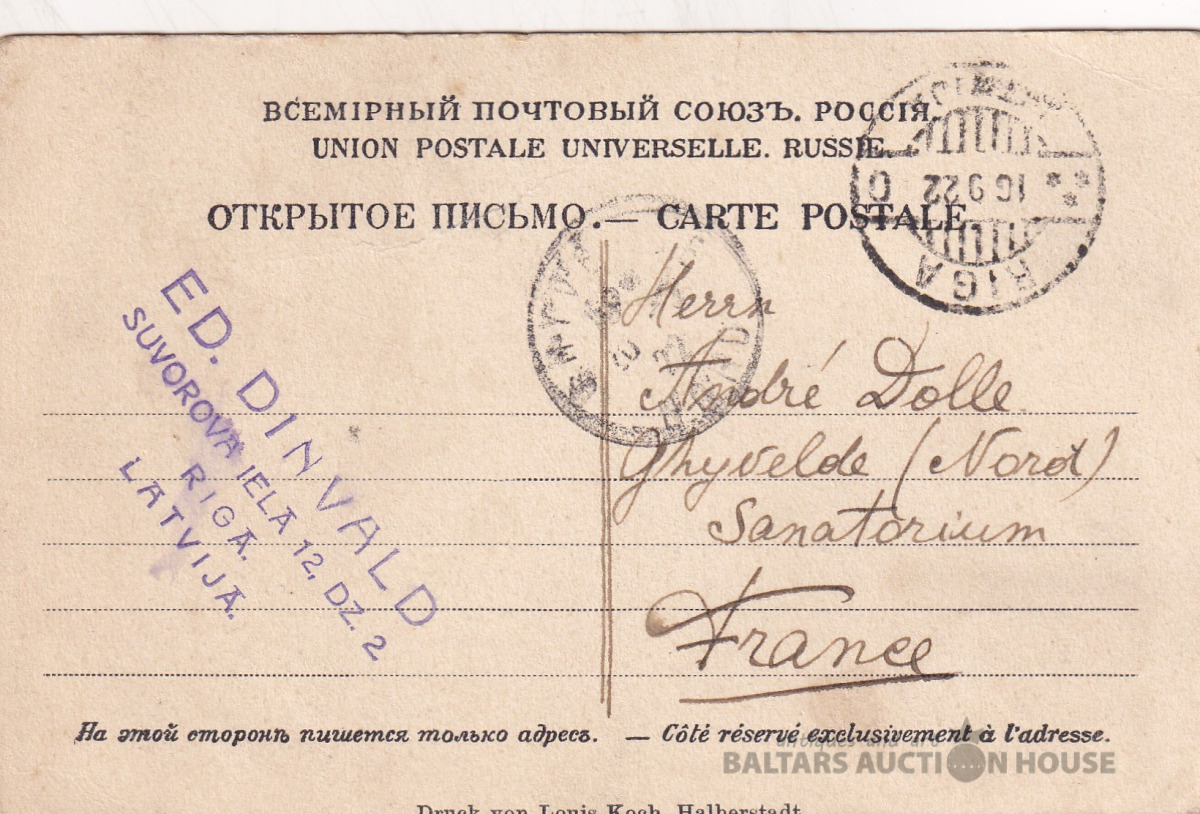 ВСЕМІРНЫЙ ПОЧТОВЫЙ СОЮЗЪ. РОССІЯ.
UNION POSTALE UNIVERSELLE. RUSSIE.
ОТКРЫТОЕ ПИСЬМО. — CARTE POSTALE
16 9 22
RIGA
ED. DINVALD
SUVOROVA IELĀ 12, DZ. 2
RIGĀ.
LATVIJĀ.
Herrn
André Dolle
Ghyvelde (Nord)
Sanatorium
France
На этой сторонѣ пишется только адресъ. — Côté réservé exclusivement à l'adresse.
antiques and art
BALTARS AUCTION HOUSE
Druck von Louis Koch, Halberstadt